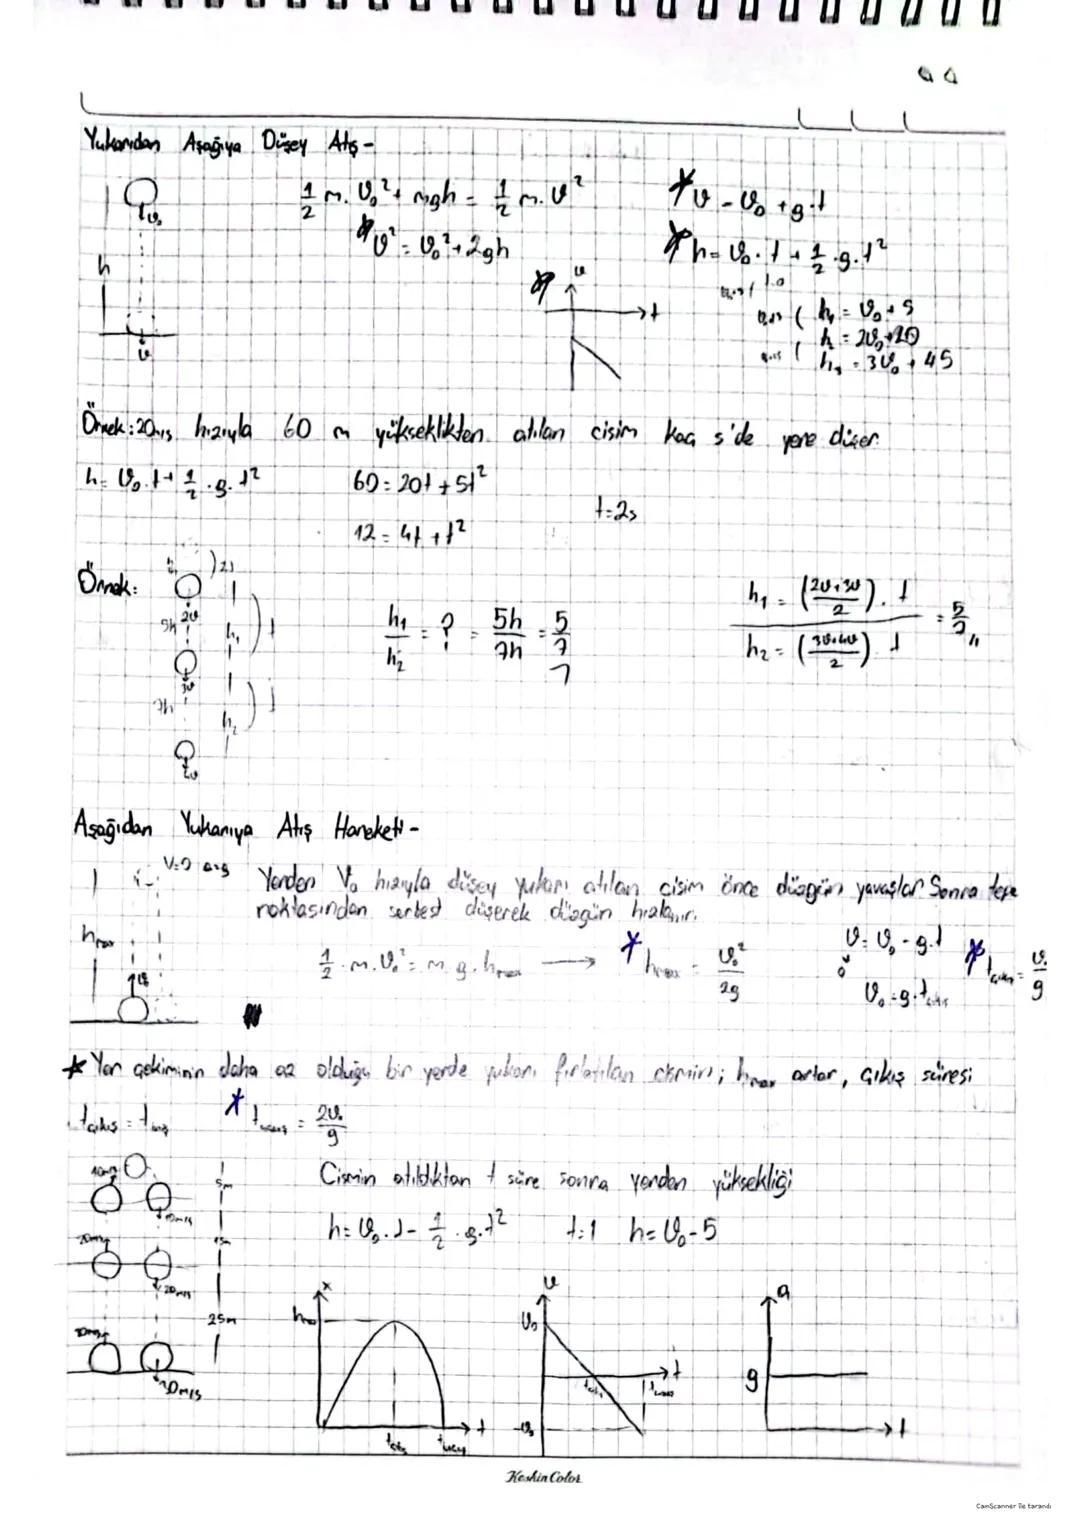 Yukarıdan Aşağıya Düşey Atış -
1/2 m. v₀² + mgh = 1/2 m. v²
* v² = v₀² + 2gh
* v = v₀ + g.t
* h = v₀.t + 1/2 .g.t²
h
v₀
v
v
t
h₁ = v₀ + 5
h = 2v₀ + 20
h₃ = 3v₀ + 45
Örnek: 20m/s hızıyla 60 m yükseklikten atılan cisim kaç s'de yere düşer
h = v₀.t + 1/2 .g.t²
60 = 20t + 5t²
12 = 4t + t²
t = 2s
Örnek:
5h 2v h₁ t
3v
7h h₂ t
h₁/h₂ = ? = 5h/7h = 5/7
h₁ = (2v+3v/2).t
h₂ = (3v+4v/2).t
= 5/7
Aşağıdan Yukarıya Atış Hareketi -
V=0
Yerden V₀ hızıyla düşey yukarı atılan cisim önce düzgün yavaşlar Sonra tepe
noktasından serbest düşerek düzgün hızlanır.
hmax
v₀
1/2 .m.v₀² = m.g.hmax → * hmax = v₀²/2g
v = v₀ - g.t
0
v₀ = g.tçıkış
* tçıkış = v₀/g
* Yer çekiminin daha az olduğu bir yerde yukarı fırlatılan cismin; hmax artar, çıkış süresi
tçıkış = tiniş
* tuçuş = 2v₀/g
Cismin atıldıktan t süre sonra yerden yüksekliği
h = v₀.t - 1/2 .g.t² t=1 h = v₀-5
10m/s 5m
10m/s
20m/s 15m
20m/s
25m
x
hmax
t
v
v₀
-v₀
t
a
g
t
KeskinColor
CamScanner ile tarandı